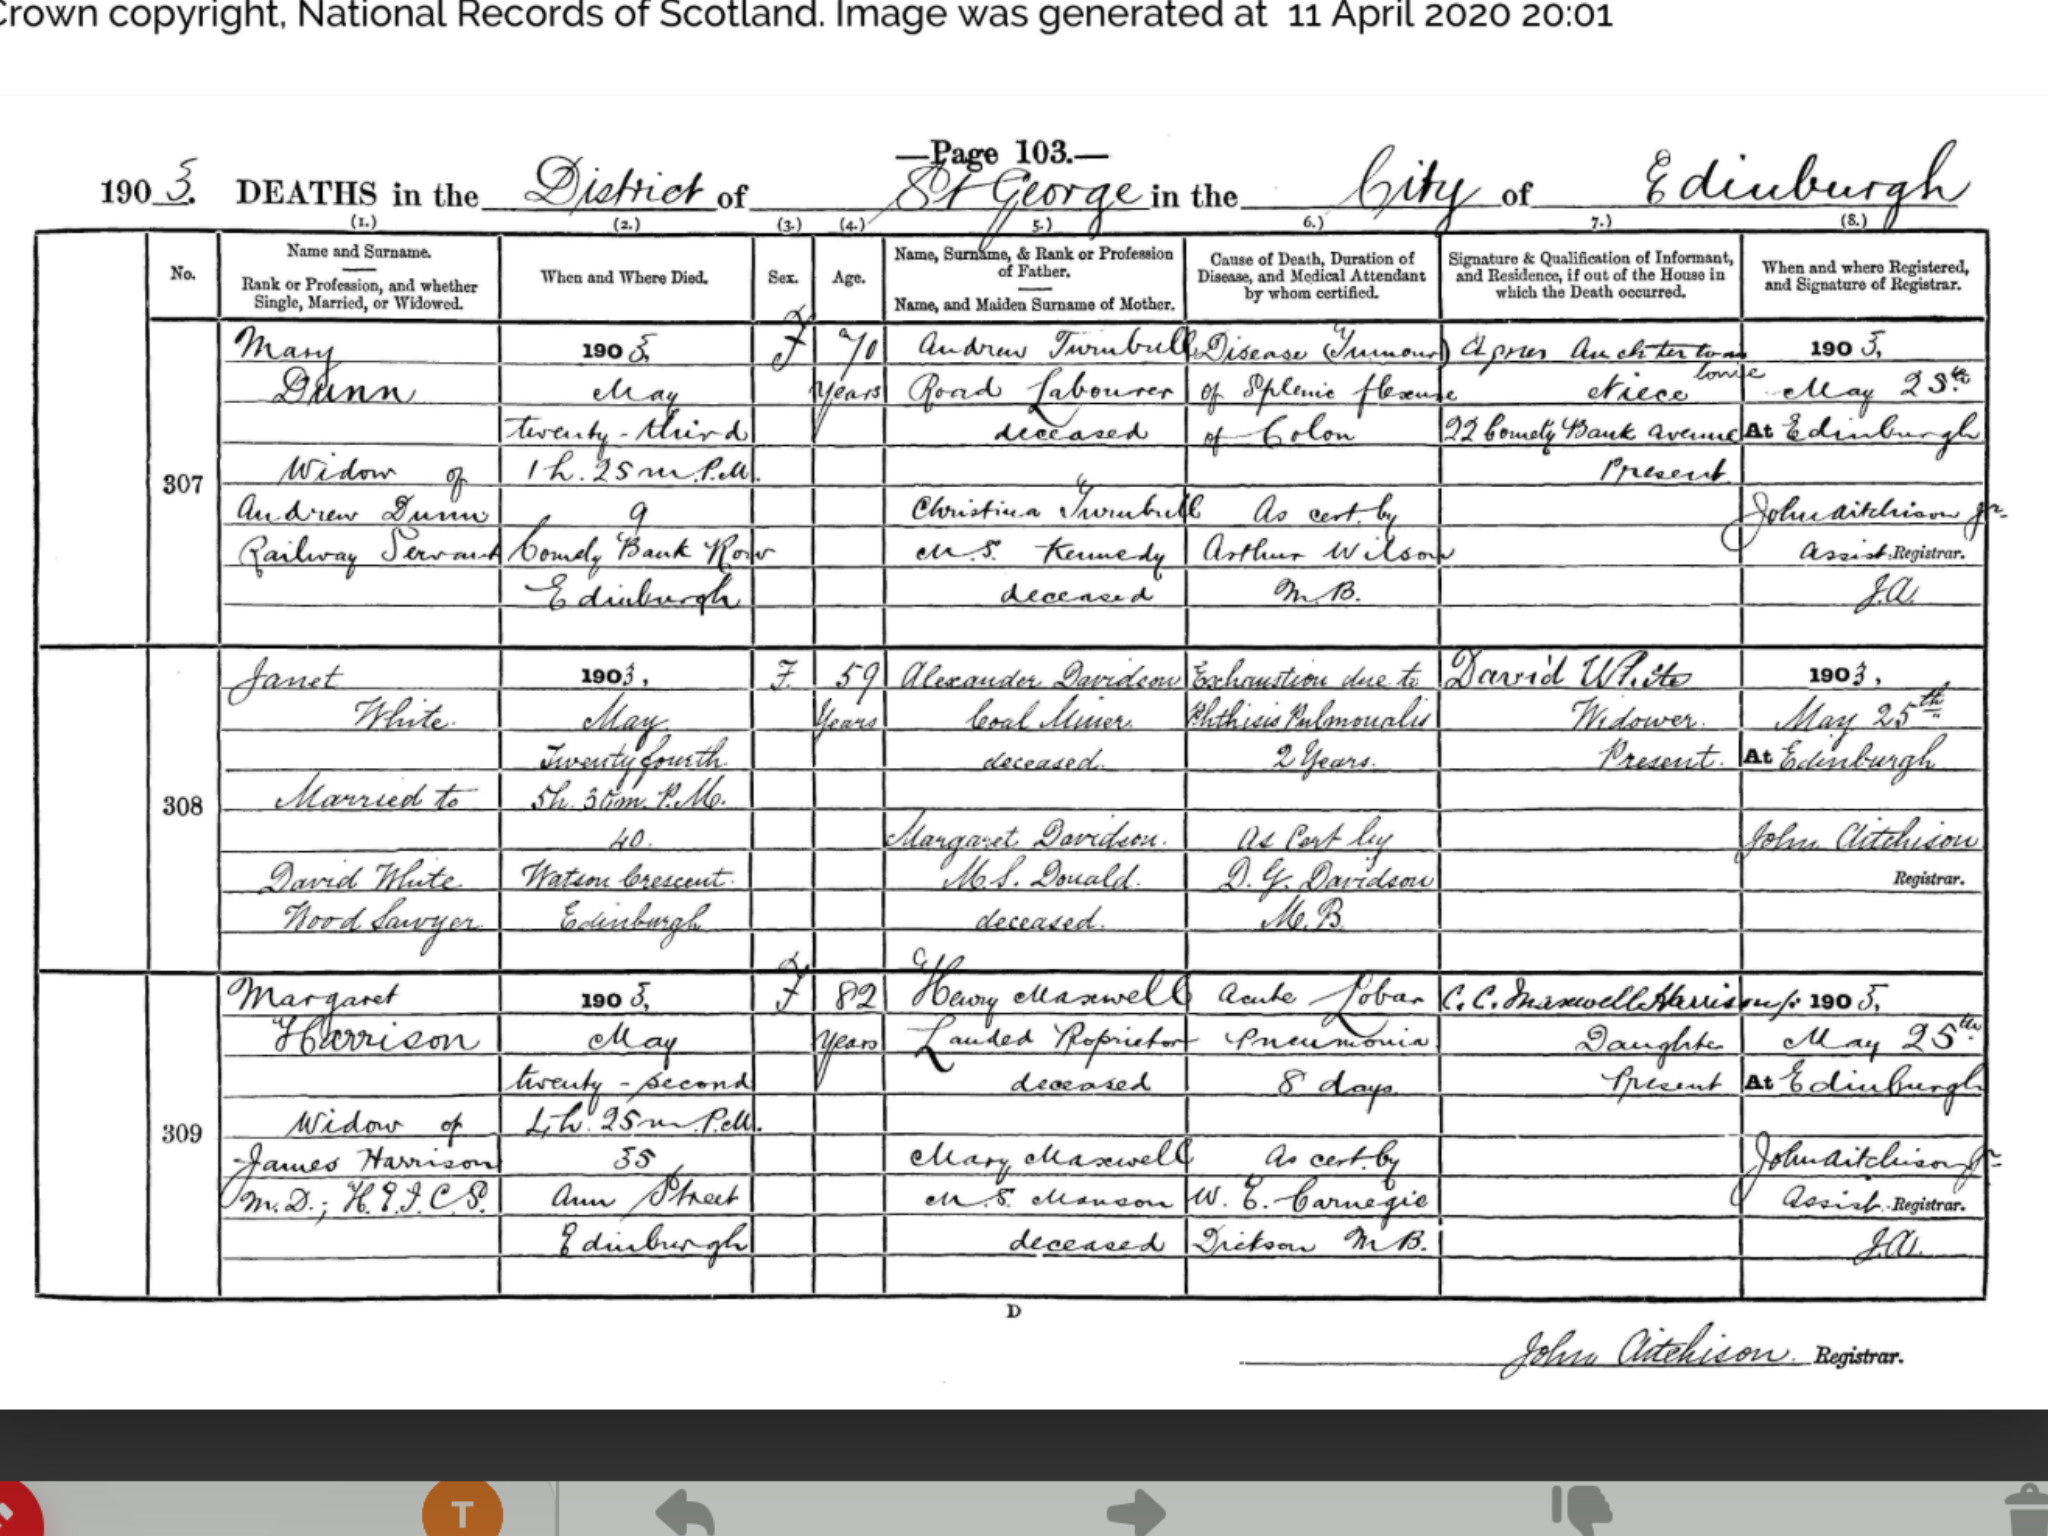 Crown copyright, National Records of Scotland. Image was generated at 11 April 2020 20:01
—Page 103.—
1903. DEATHS in the District of St George in the City of Edinburgh
(1.) (2.) (3.) (4.) 5.) 6.) 7.) (8.)
No.
Name and Surname.
Rank or Profession, and whether
Single, Married, or Widowed.
When and Where Died.
Sex.
Age.
Name, Surname, & Rank or Profession
of Father.
Name, and Maiden Surname of Mother.
Cause of Death, Duration of
Disease, and Medical Attendant
by whom certified.
Signature & Qualification of Informant,
and Residence, if out of the House in
which the Death occurred.
When and where Registered,
and Signature of Registrar.
307
Mary
Dunn
Widow of
Andrew Dunn
Railway Servant
1903,
May
twenty-third
1h. 25m. P.M.
9
Comely Bank Row
Edinburgh
F
70
Years
Andrew Turnbull
Road Labourer
deceased
Christina Turnbull
M.S. Kennedy
deceased
Disease (Tumour)
of Splenic flexure
of Colon
As cert. by
Arthur Wilson
M.B.
Agnes Auchterlonie
Niece
22 Comely Bank Avenue
Present
1903,
May 25th
At Edinburgh
John Aitchison Jr.
Assist. Registrar.
J.A.
308
Janet
White
Married to
David White
Wood Sawyer
1903,
May
Twenty fourth
5h. 30m. P.M.
40.
Watson Crescent.
Edinburgh
F.
59
Years
Alexander Davidson
Coal Miner.
deceased.
Margaret Davidson.
M.S. Donald.
deceased.
Exhaustion due to
Phthisis Pulmonalis
2 Years.
As Cert by
D. G. Davidson
M.B.
David White
Widower.
Present.
1903,
May 25th
At Edinburgh
John Aitchison
Registrar.
309
Margaret
Harrison
Widow of
James Harrison
M.D.; H.E.I.C.S.
1903,
May
twenty-second
4h. 25m. P.M.
55
Ann Street
Edinburgh
F
82
Years
Henry Maxwell
Landed Proprietor
deceased
Mary Maxwell
M.S. Manson
deceased
Acute Lobar
Pneumonia
8 days
As cert. by
W. E. Carnegie
Dickson M.B.
C. C. Maxwell Harrison
Daughter
Present
1903,
May 25th
At Edinburgh
John Aitchison Jr.
Assist. Registrar.
J.A.
D
John Aitchison. Registrar.
T